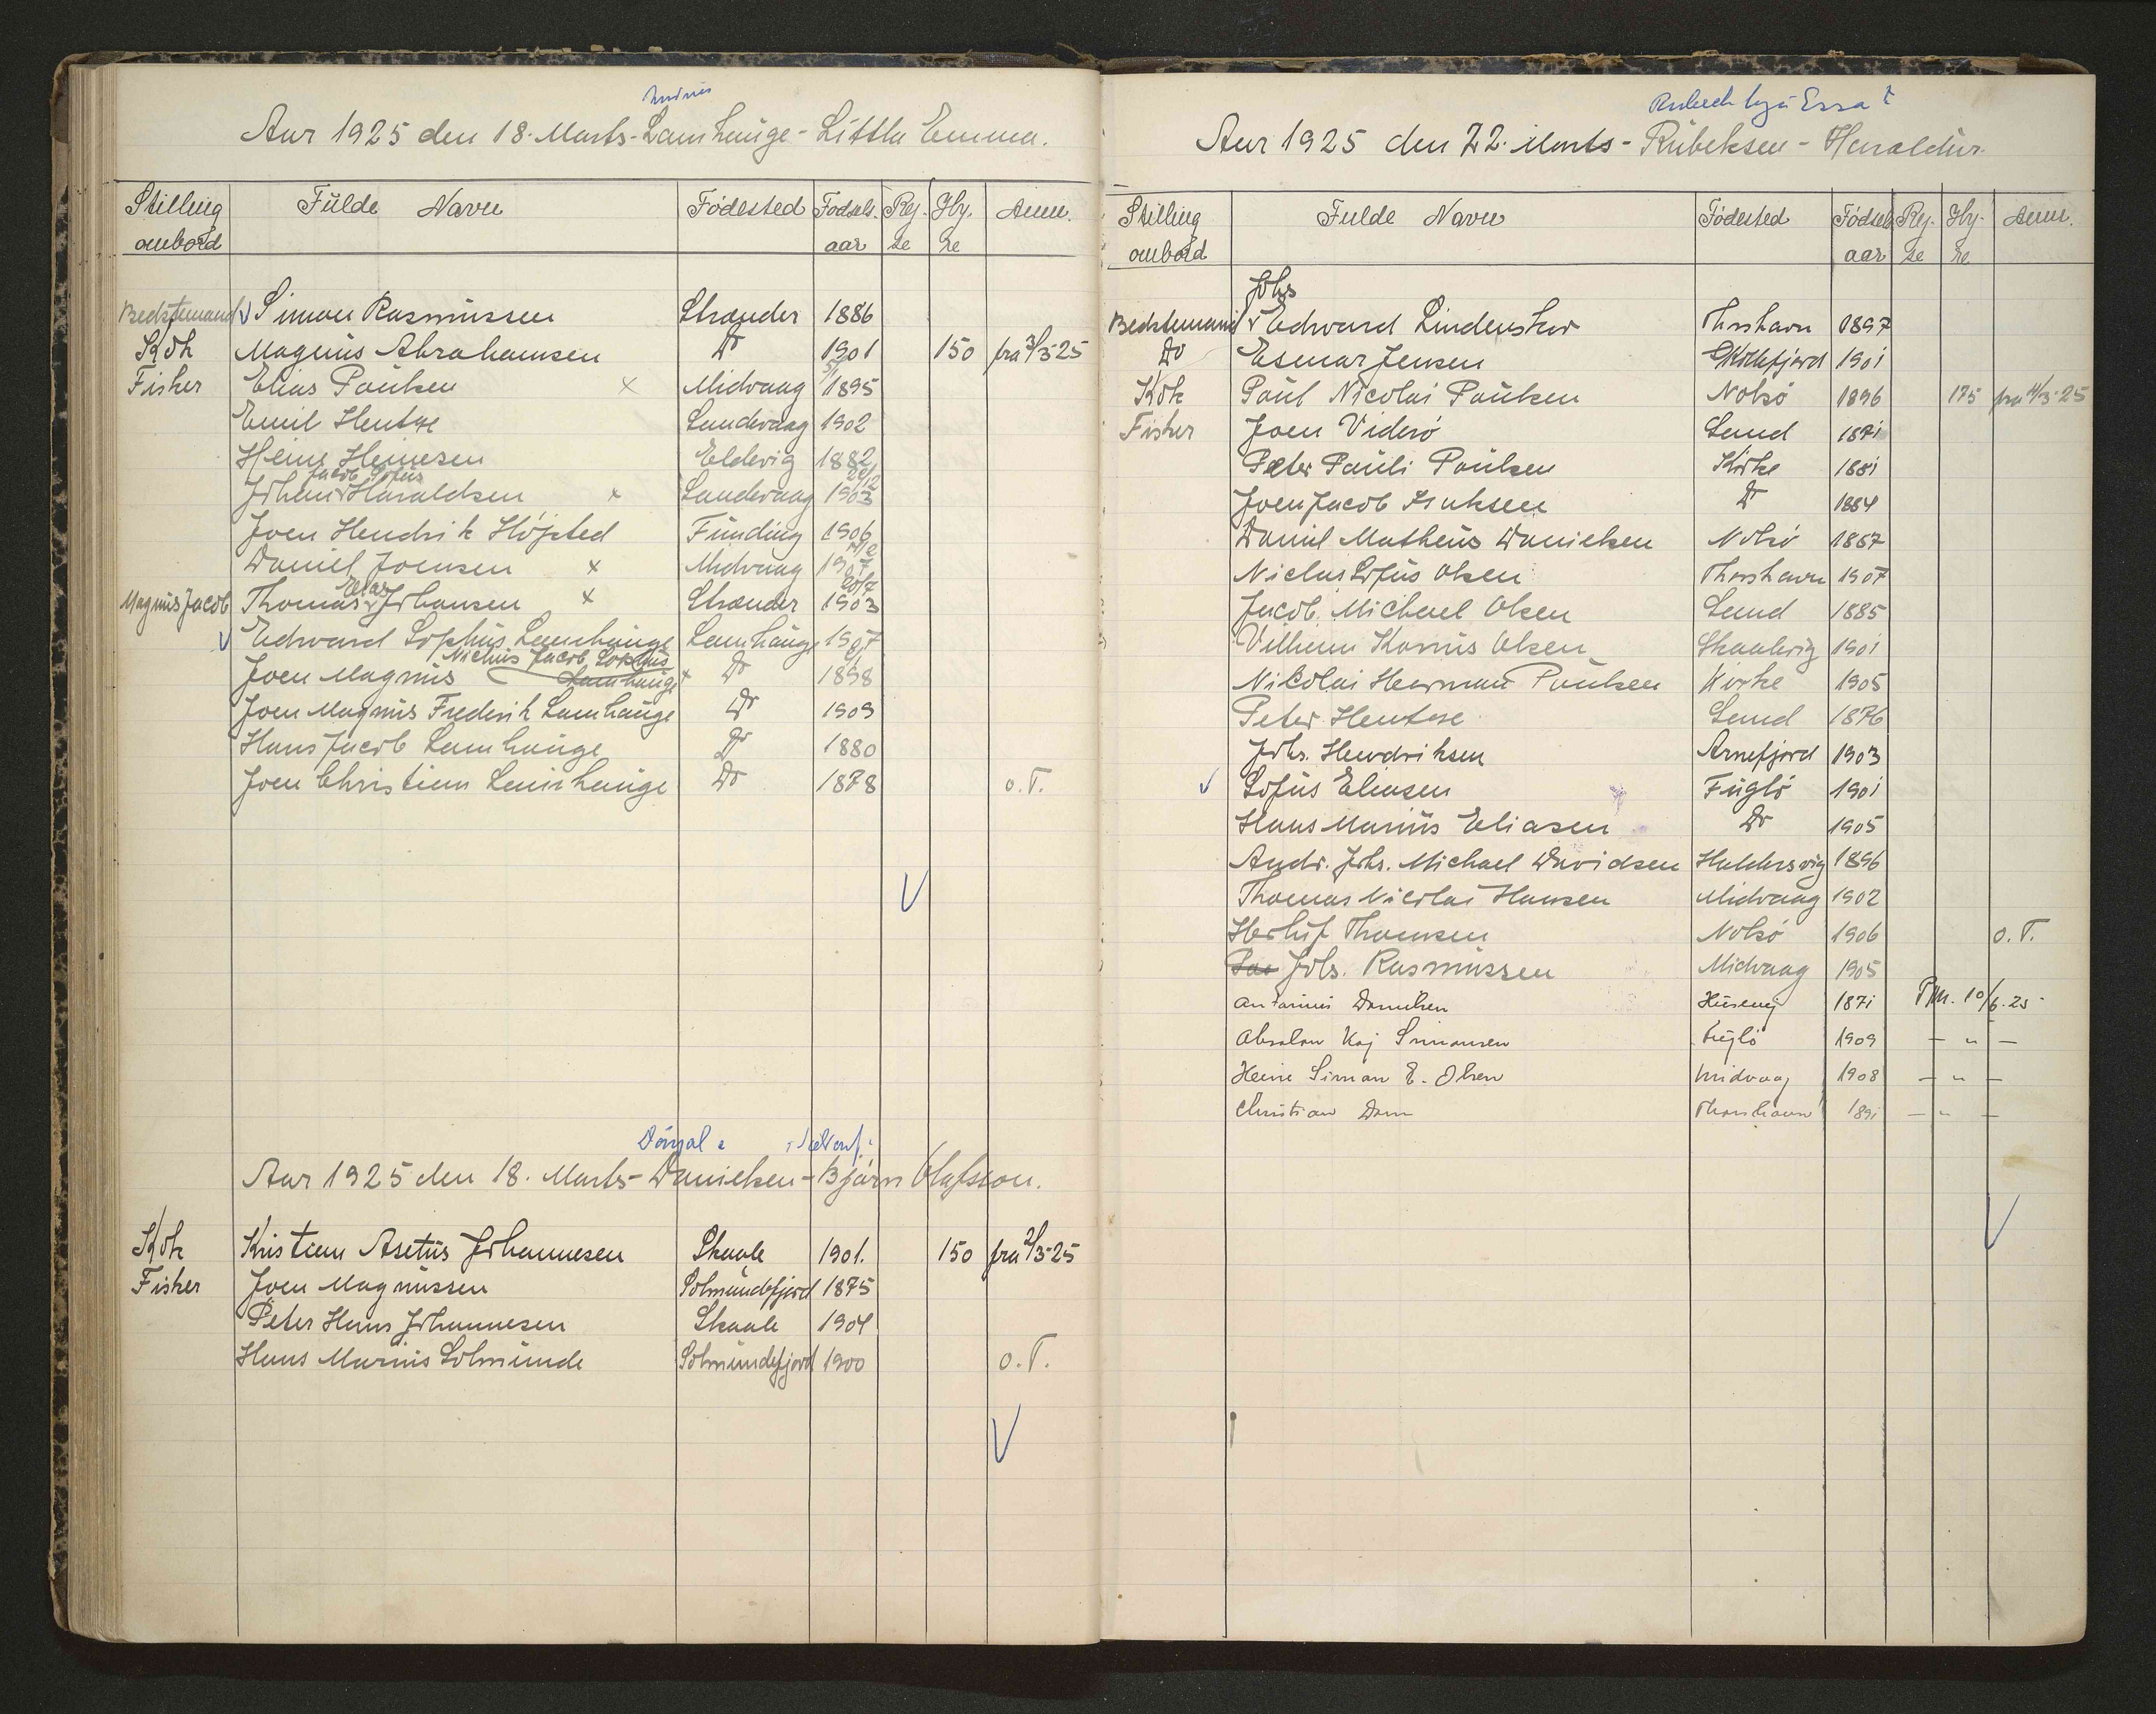 Aar 1925 den 18. Marts - Lamhauge - Littla Emma.
Stilling ombord Fulde Navn Fødested Fødsels aar Rej se Hy re Anm.
Bedstemand Simon Rasmussen Strænder 1886
Kok Magnus Abrahamsen Do 1901 150 fra 3/3-25
Fisker Elias Poulsen x Midvaag 5/1 1895
Emil Hentze Sandevaag 1902
Heine Heinesen Eldevig 1882
Jacob Sofus
Johan Haraldsen x Sandevaag 20/12 1903
Joen Hendrik Højsted Funding 1906
Daniel Joensen x Midvaag 1907
Magnus Jacob Thomas Elias Johansen x Strænder 20/7 1903
Edward Sophus Lamhauge Lamhauge 1907
Niclius Jacob Sophus
Joen Magnus Lamhauge x Do 1898
Joen Magnus Frederik Lamhauge Do 1909
Hans Jacob Lamhauge Do 1880
Joen Christian Lamhauge Do 1878 o. T.
Aar 1925 den 18. Marts - Danielsen - Bjørn Olafsson.
Kok Kristian Asetus Johannesen Skaale 1901. 150 fra 2/3-25
Fisker Joen Magnussen Solmundefjord 1875
Peter Hans Johannesen Skaale 1904
Hans Marius Solmunde Solmundefjord 1900 o. T.
Aar 1925 den 22. Marts - Rubeksen - Haraldur.
Stilling ombord Fulde Navn Fødested Fødsels aar Rej- se Hy- re Anm.
Johs
Bedstemand Edward Lindenskov Thorshavn 1897
Do Esmar Jensen Kollefjord 1901
Kok Poul Nicolai Poulsen Nolsø 1896 175 fra 11/3-25
Fisker Joen Viderø Sund 1871
Peter Pauli Poulsen Kirke 1881
Joen Jacob Isaksen Do 1884
Daniel Matheus Danielsen Nolsø 1887
Niclas Sofus Olsen Thorshavn 1907
Jacob Michael Olsen Sund 1885
Vilhelm Konius Olsen Skaalevig 1901
Nikolai Herman Poulsen Kirke 1905
Peter Hentze Sund 1876
Johs. Hendriksen Arnefjord 1903
Sofus Eliasen Fuglø 1901
Hans Marius Eliasen Do 1905
Andr. Johs. Michael Davidsen Haldersvig 1896
Thomas Nicolai Hansen Midvaag 1902
Herluf Thomsen Nolsø 1906 o. T.
Johs. Rasmussen Midvaag 1905
Antonius Danielsen Husevig 1871 P.M. 10/6. 25
Absalon Kaj Simonsen Fuglø 1909 - " -
Heine Simon E. Olsen Midvaag 1908 - " -
Christian Dam Thorshavn 1891 - " -